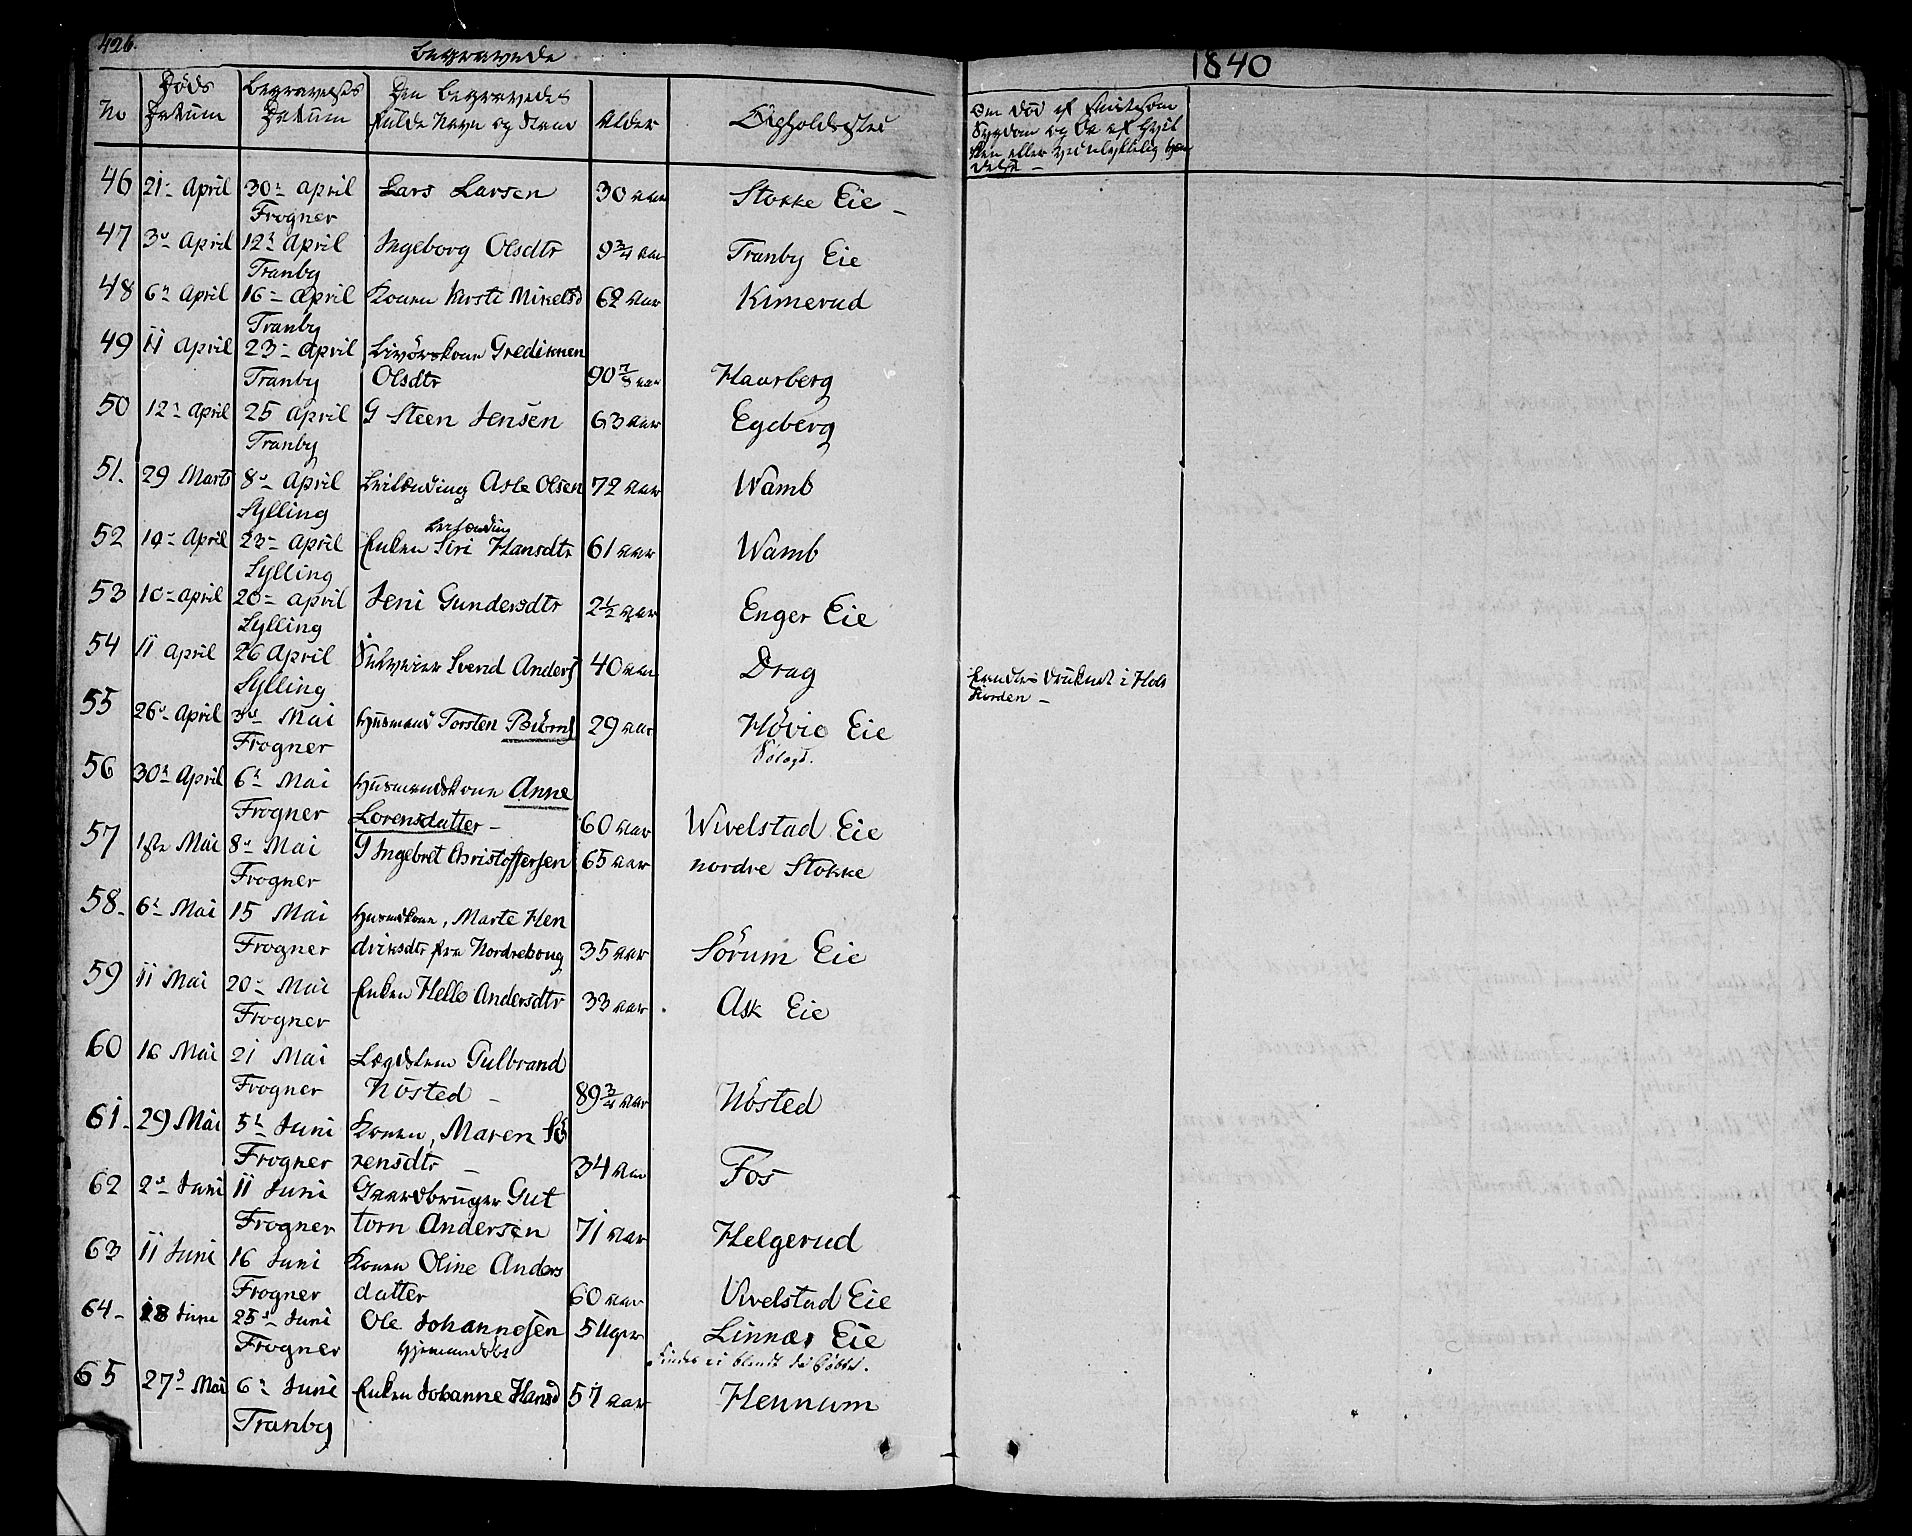 426.
Begravede
1840
No
Döds Datum
Begravelses Datum
Den Begravedes fulde Navn og Stand
Alder
Opholdssted
Om død af smitsom
Sygdom og
eller ved ulykkelig Hæn
delse –
46 21– April 30– April Lars Larsen 30 aar Stokke Eie –
Frogner
47 3– April 12– April Ingeborg Olsdtr 9 3/4 aar Tranby Eie
Tranby
48 6– April 16– April Konen Kirsti Mikelsd 62 aar Kimerud
Tranby
49 11 April 23– April Livörskone Gredikken
Tranby Olsdtr 90 aar Haarberg
50 12– April 25 April G Steen Jensen 63 aar Egeberg
Tranby
51. 29 Marts 8– April Leilænding Asle Olsen 72 aar Wamb
Sylling
Leilænding
52 19– April 23– April Enken Siri Hansdtr 61 aar Wamb
Sylling
53 10– April 20– April Jeni Gundersdtr 2 1/2 aar Enger Eie
Sylling
54 11 April 26 April Selveier Svend Anders 40 aar Drag fandtes druknet i Hols
Sylling fiorden –
55 26– April 3– Mai Husmand Torsten Biörns 29 aar Høvie Eie
Frogner
56 30– April 6– Mai Husmandskone Anne
Frogner Lorensdatter – 60 aar Wivelstad Eie
57 1ste Mai 8– Mai G Ingebret Christoffersen 65 aar nordre Stokke
Frogner
58– 6– Mai 15 Mai Husmdkone, Marte Hen
Frogner driksdtr fra Nordrehoug 35 aar Sörum Eie
59 11 Mai 20– Mai Enken Helle Andersdtr 33 aar Ask Eie
Frogner
60 16 Mai 21 Mai Lægdslem Gulbrand
Frogner Nösted – 89 3/4 aar Nösted
61– 29 Mai 5– Juni Konen, Maren Sö
Frogner rensdtr – 34 aar Fos
62 2– Juni 11 Juni Gaardbruger Gut
Frogner torn Andersen 71 aar Helgerud
63 11 Juni 16 Juni Konen Oline Anders
Frogner datter 60 aar Vivelstad Eie
64– 18 Juni 25– Juni Ole Johannesen 5 Uger Linnæs Eie
Frogner Hjemmedöbt Findes ei blandt de Döbte.
65 27– Mai 6– Juni Enken Johanne Hansd 57 aar Hennum
Tranby